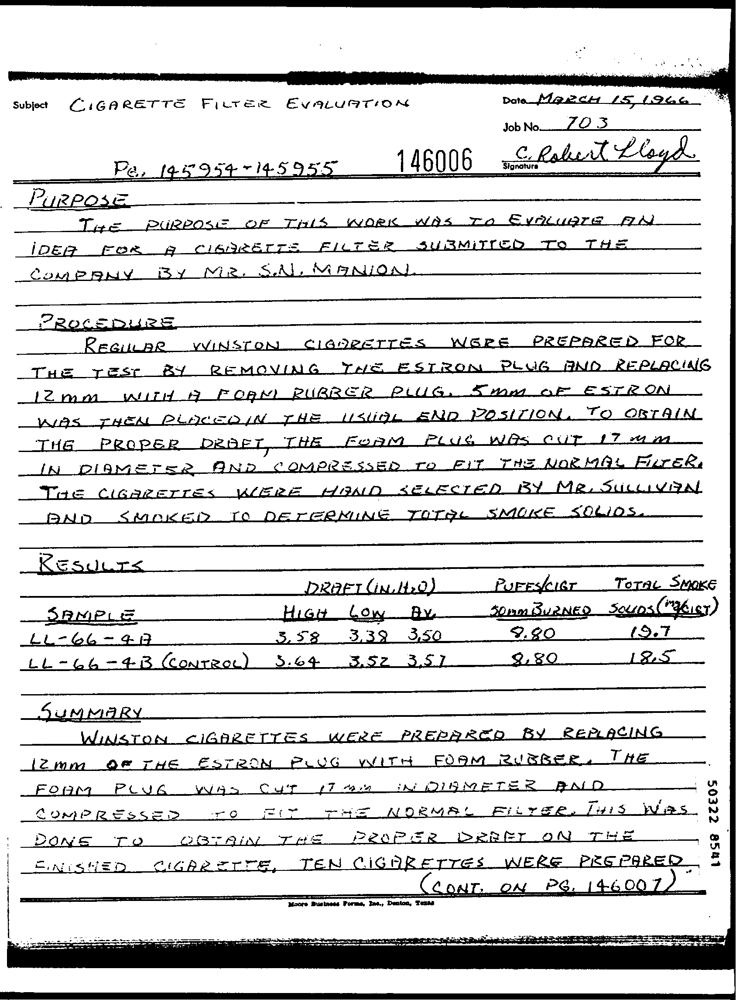 Subject CIGARETTE FILTER EVALUATION Date MARCH 15, 1966
Job No. 703
PG. 145954-145955 146006 C. Robert Lloyd
Signature
PURPOSE
THE PURPOSE OF THIS WORK WAS TO EVALUATE AN
IDEA FOR A CIGARETTE FILTER SUBMITTED TO THE
COMPANY BY MR. S.N. MANION.
PROCEDURE
REGULAR WINSTON CIGARETTES WERE PREPARED FOR
THE TEST BY REMOVING THE ESTRON PLUG AND REPLACING
12 mm WITH A FOAM RUBBER PLUG. 5mm OF ESTRON
WAS THEN PLACED IN THE USUAL END POSITION. TO OBTAIN
THE PROPER DRAFT, THE FOAM PLUG WAS CUT 17 mm
IN DIAMETER AND COMPRESSED TO FIT THE NORMAL FILTER.
THE CIGARETTES WERE HAND SELECTED BY MR. SULLIVAN
AND SMOKED TO DETERMINE TOTAL SMOKE SOLIDS.
RESULTS
DRAFT (IN. H2O) PUFFS/CIGT TOTAL SMOKE
SAMPLE HIGH LOW AV. 50mm BURNED SOLIDS (mg/CIGT)
LL-66-4A 3.58 3.38 3.50 9.80 19.7
LL-66-4B (CONTROL) 3.64 3.52 3.57 9.80 18.5
SUMMARY
WINSTON CIGARETTES WERE PREPARED BY REPLACING
12mm OF THE ESTRON PLUG WITH FOAM RUBBER. THE
FOAM PLUG WAS CUT 17 mm IN DIAMETER AND
COMPRESSED TO FIT THE NORMAL FILTER. THIS WAS
DONE TO OBTAIN THE PROPER DRAFT ON THE
FINISHED CIGARETTE. TEN CIGARETTES WERE PREPARED
(CONT. ON PG. 146007)
Moore Business Forms, Inc., Denton, Texas
50322 8541